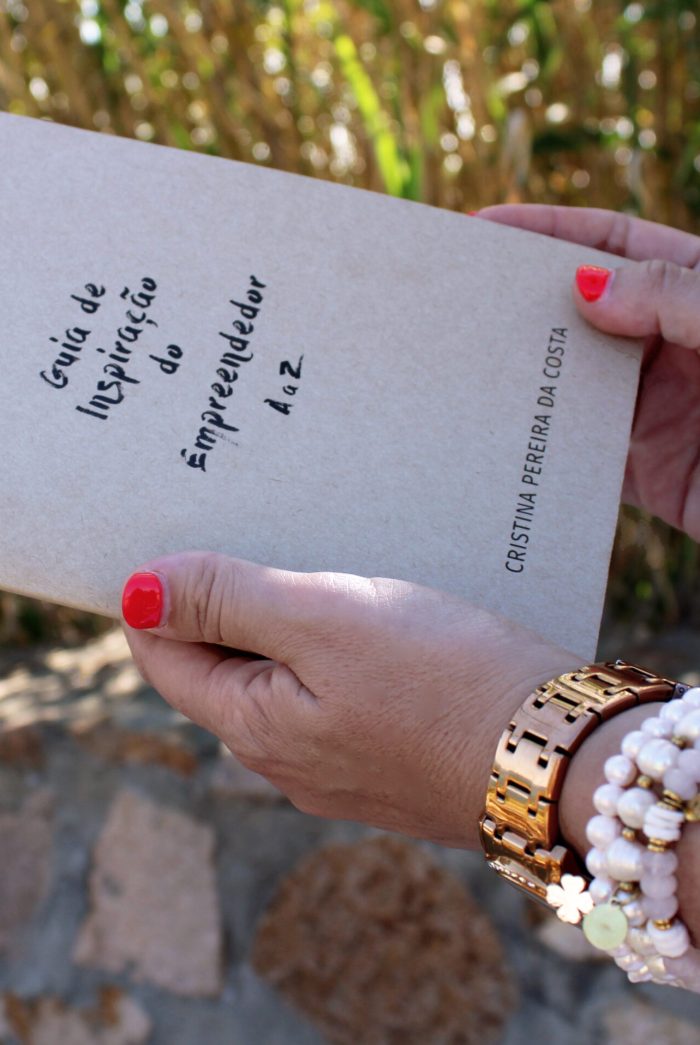 Guia de
Inspiração
do
Empreendedor
A a Z
CRISTINA PEREIRA DA COSTA